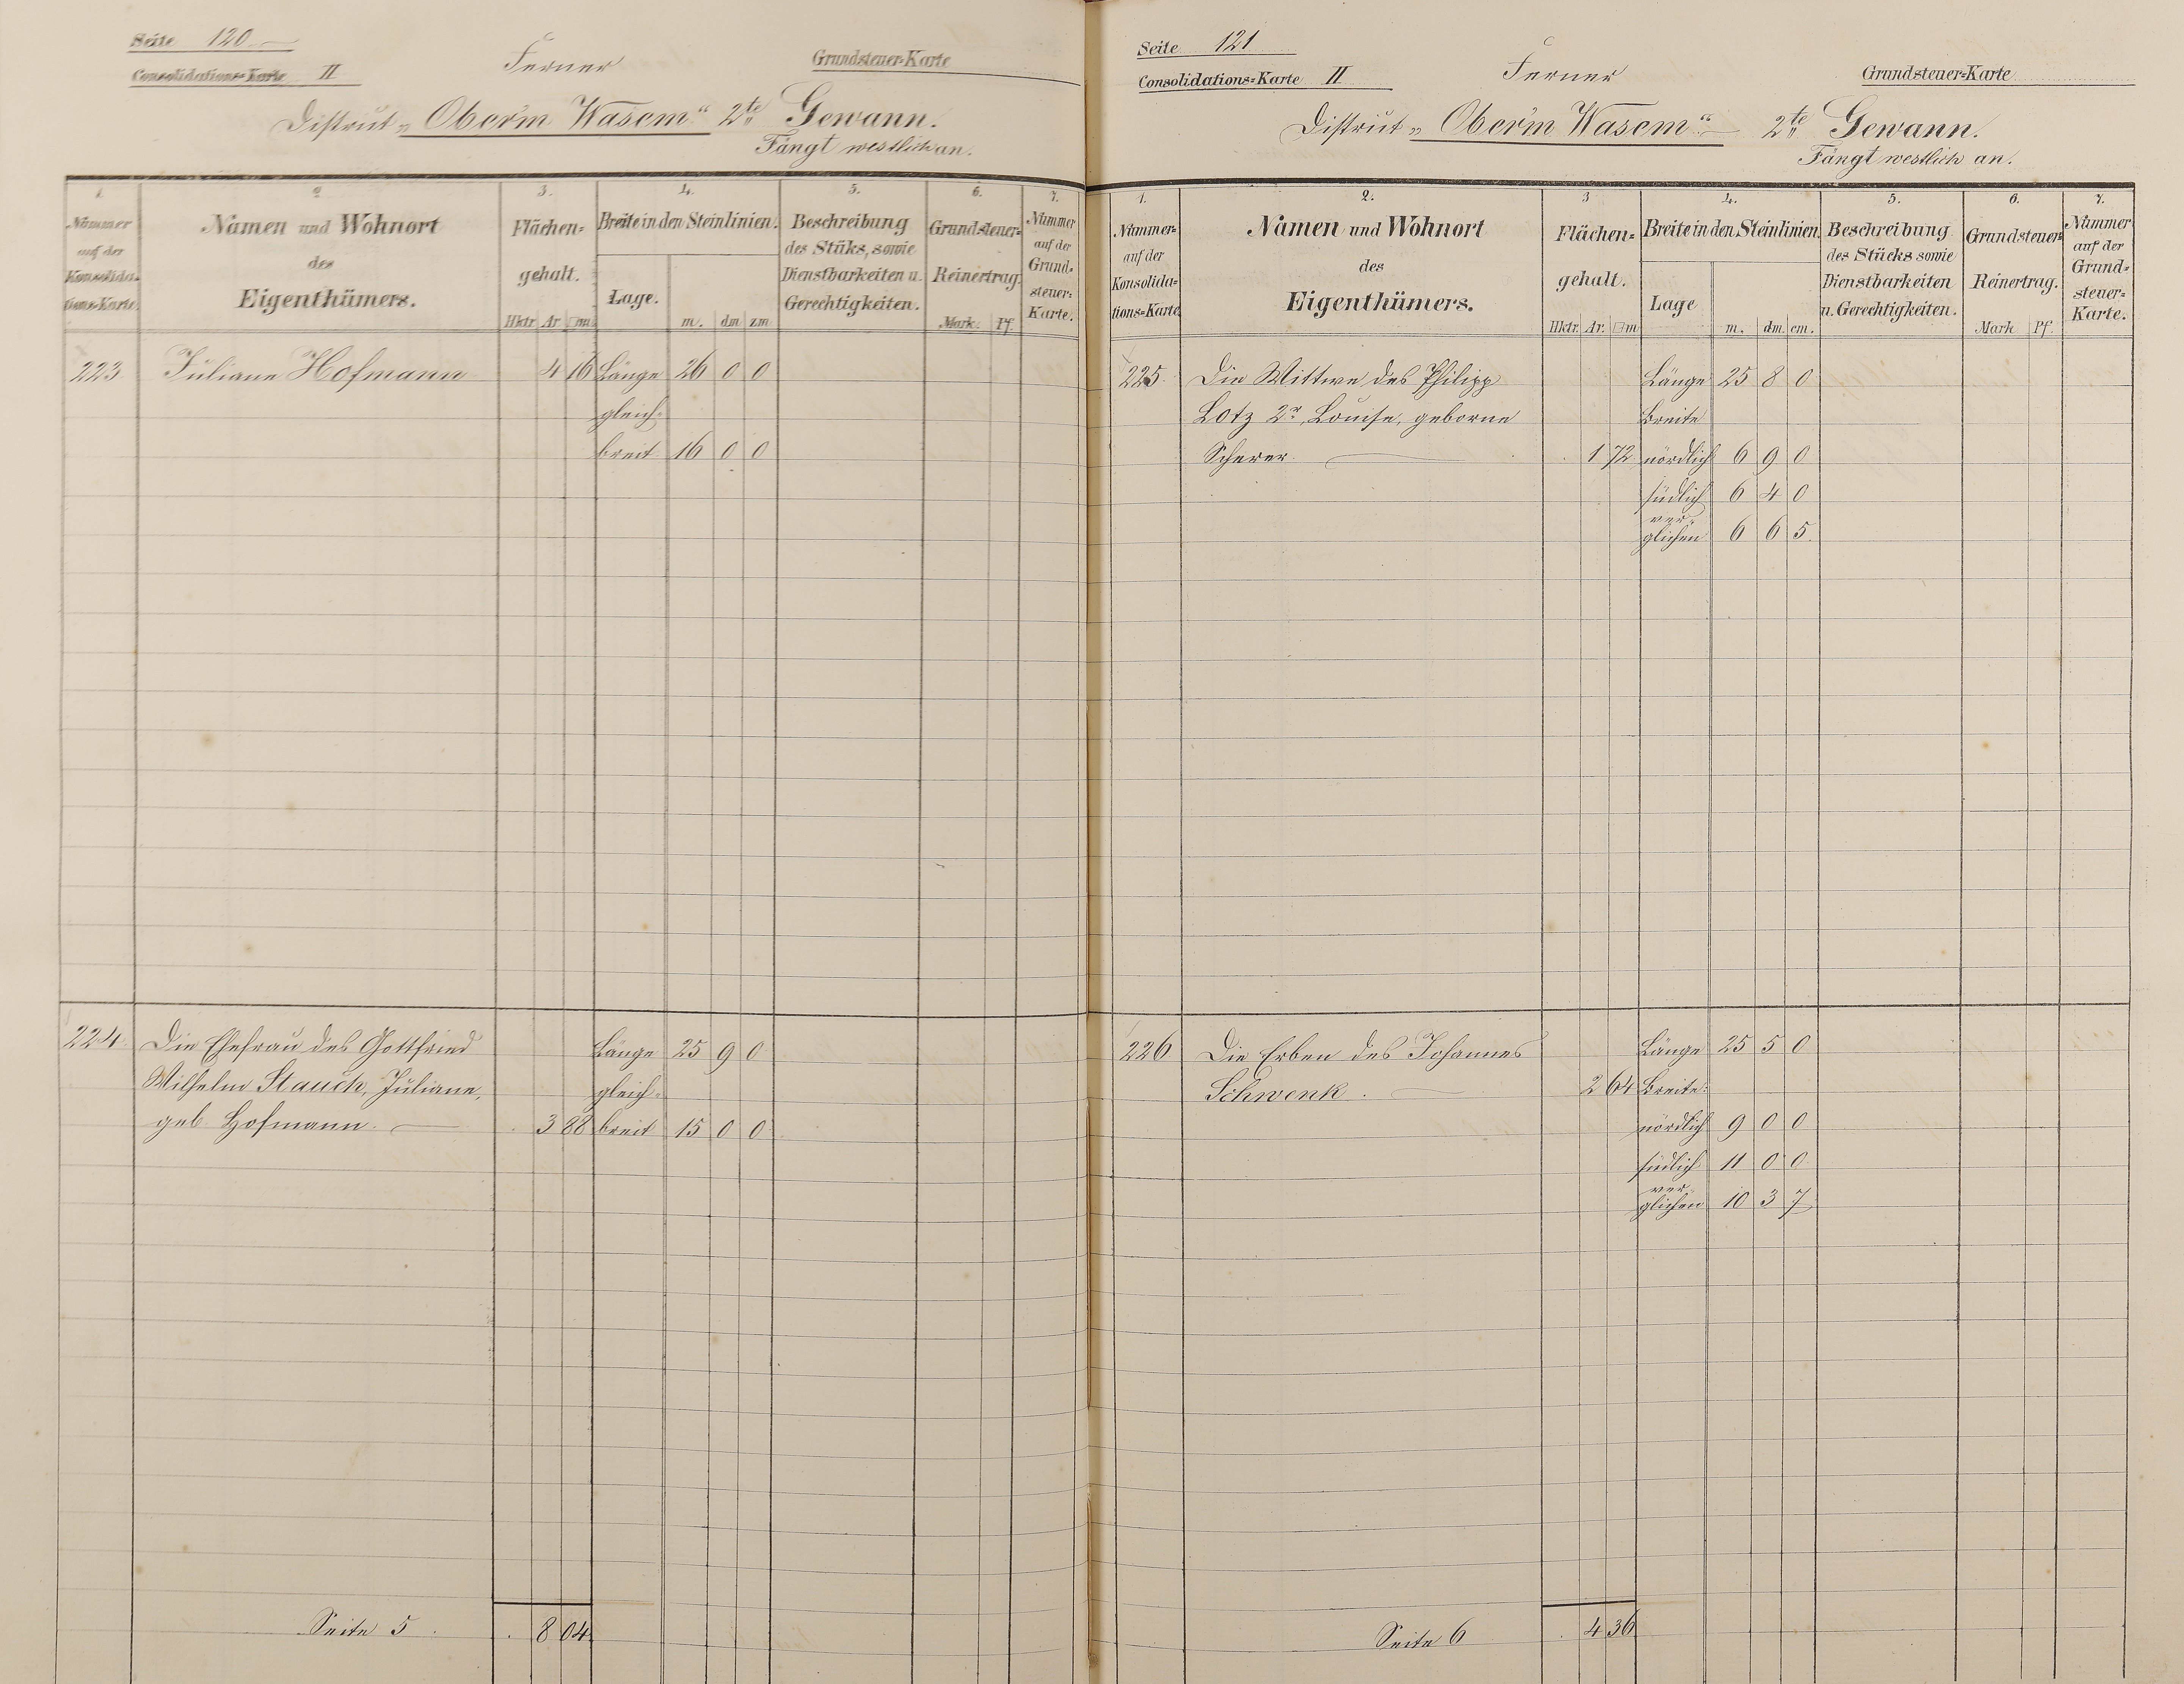 Seite 120
Consolidations-Karte II
Ferner
Grundsteuer-Karte
Distrikt „Ober'm Wasem“ 2te Gewann.
Fängt westlich an.
1. 2. 3. 4. 5. 6. 7.
Nummer auf der Konsolida-tions-Karte.
Namen und Wohnort des Eigenthümers.
Flächen-gehalt.
Hktr. Ar □m
Breite in den Steinlinien.
Lage. m. dm zm
Beschreibung des Stüks, sowie Dienstbarkeiten u. Gerechtigkeiten.
Grundsteuer-Reinertrag.
Mark. Pf.
Nummer auf der Grund-steuer-Karte.
223. Juliane Hofmann 4 16 Länge 26 0 0
gleich-
breit 16 0 0
224. Die Ehefrau des Gottfried Länge 25 9 0
Wilhelm Stauch, Juliane, gleich-
geb. Hofmann. 3 88 breit 15 0 0
Seite 5. 8 04
Seite 121
Consolidations-Karte II
Ferner
Grundsteuer-Karte
Distrikt „Ober'm Wasem“ 2te Gewann.
Fängt westlich an.
1. 2. 3. 4. 5. 6. 7.
Nummer auf der Konsolida-tions-Karte
Namen und Wohnort des Eigenthümers.
Flächen-gehalt.
Hktr. Ar. □m
Breite in den Steinlinien.
Lage m. dm. cm.
Beschreibung des Stücks sowie Dienstbarkeiten u. Gerechtigkeiten.
Grundsteuer-Reinertrag.
Mark Pf.
Nummer auf der Grund-steuer-Karte.
225. Die Wittwe des Philipp Länge 25 8 0
Lotz 2r, Louise, geborne Breite
Scherer. 1 72 nördlich 6 9 0
südlich 6 4 0
ver-
glichen 6 6 5
226 Die Erben des Johannes Länge 25 5 0
Schwenk. 2 64 Breite:
nördlich 9 0 0
südlich 11 0 0
ver-
glichen 10 3 7
Seite 6 4 36